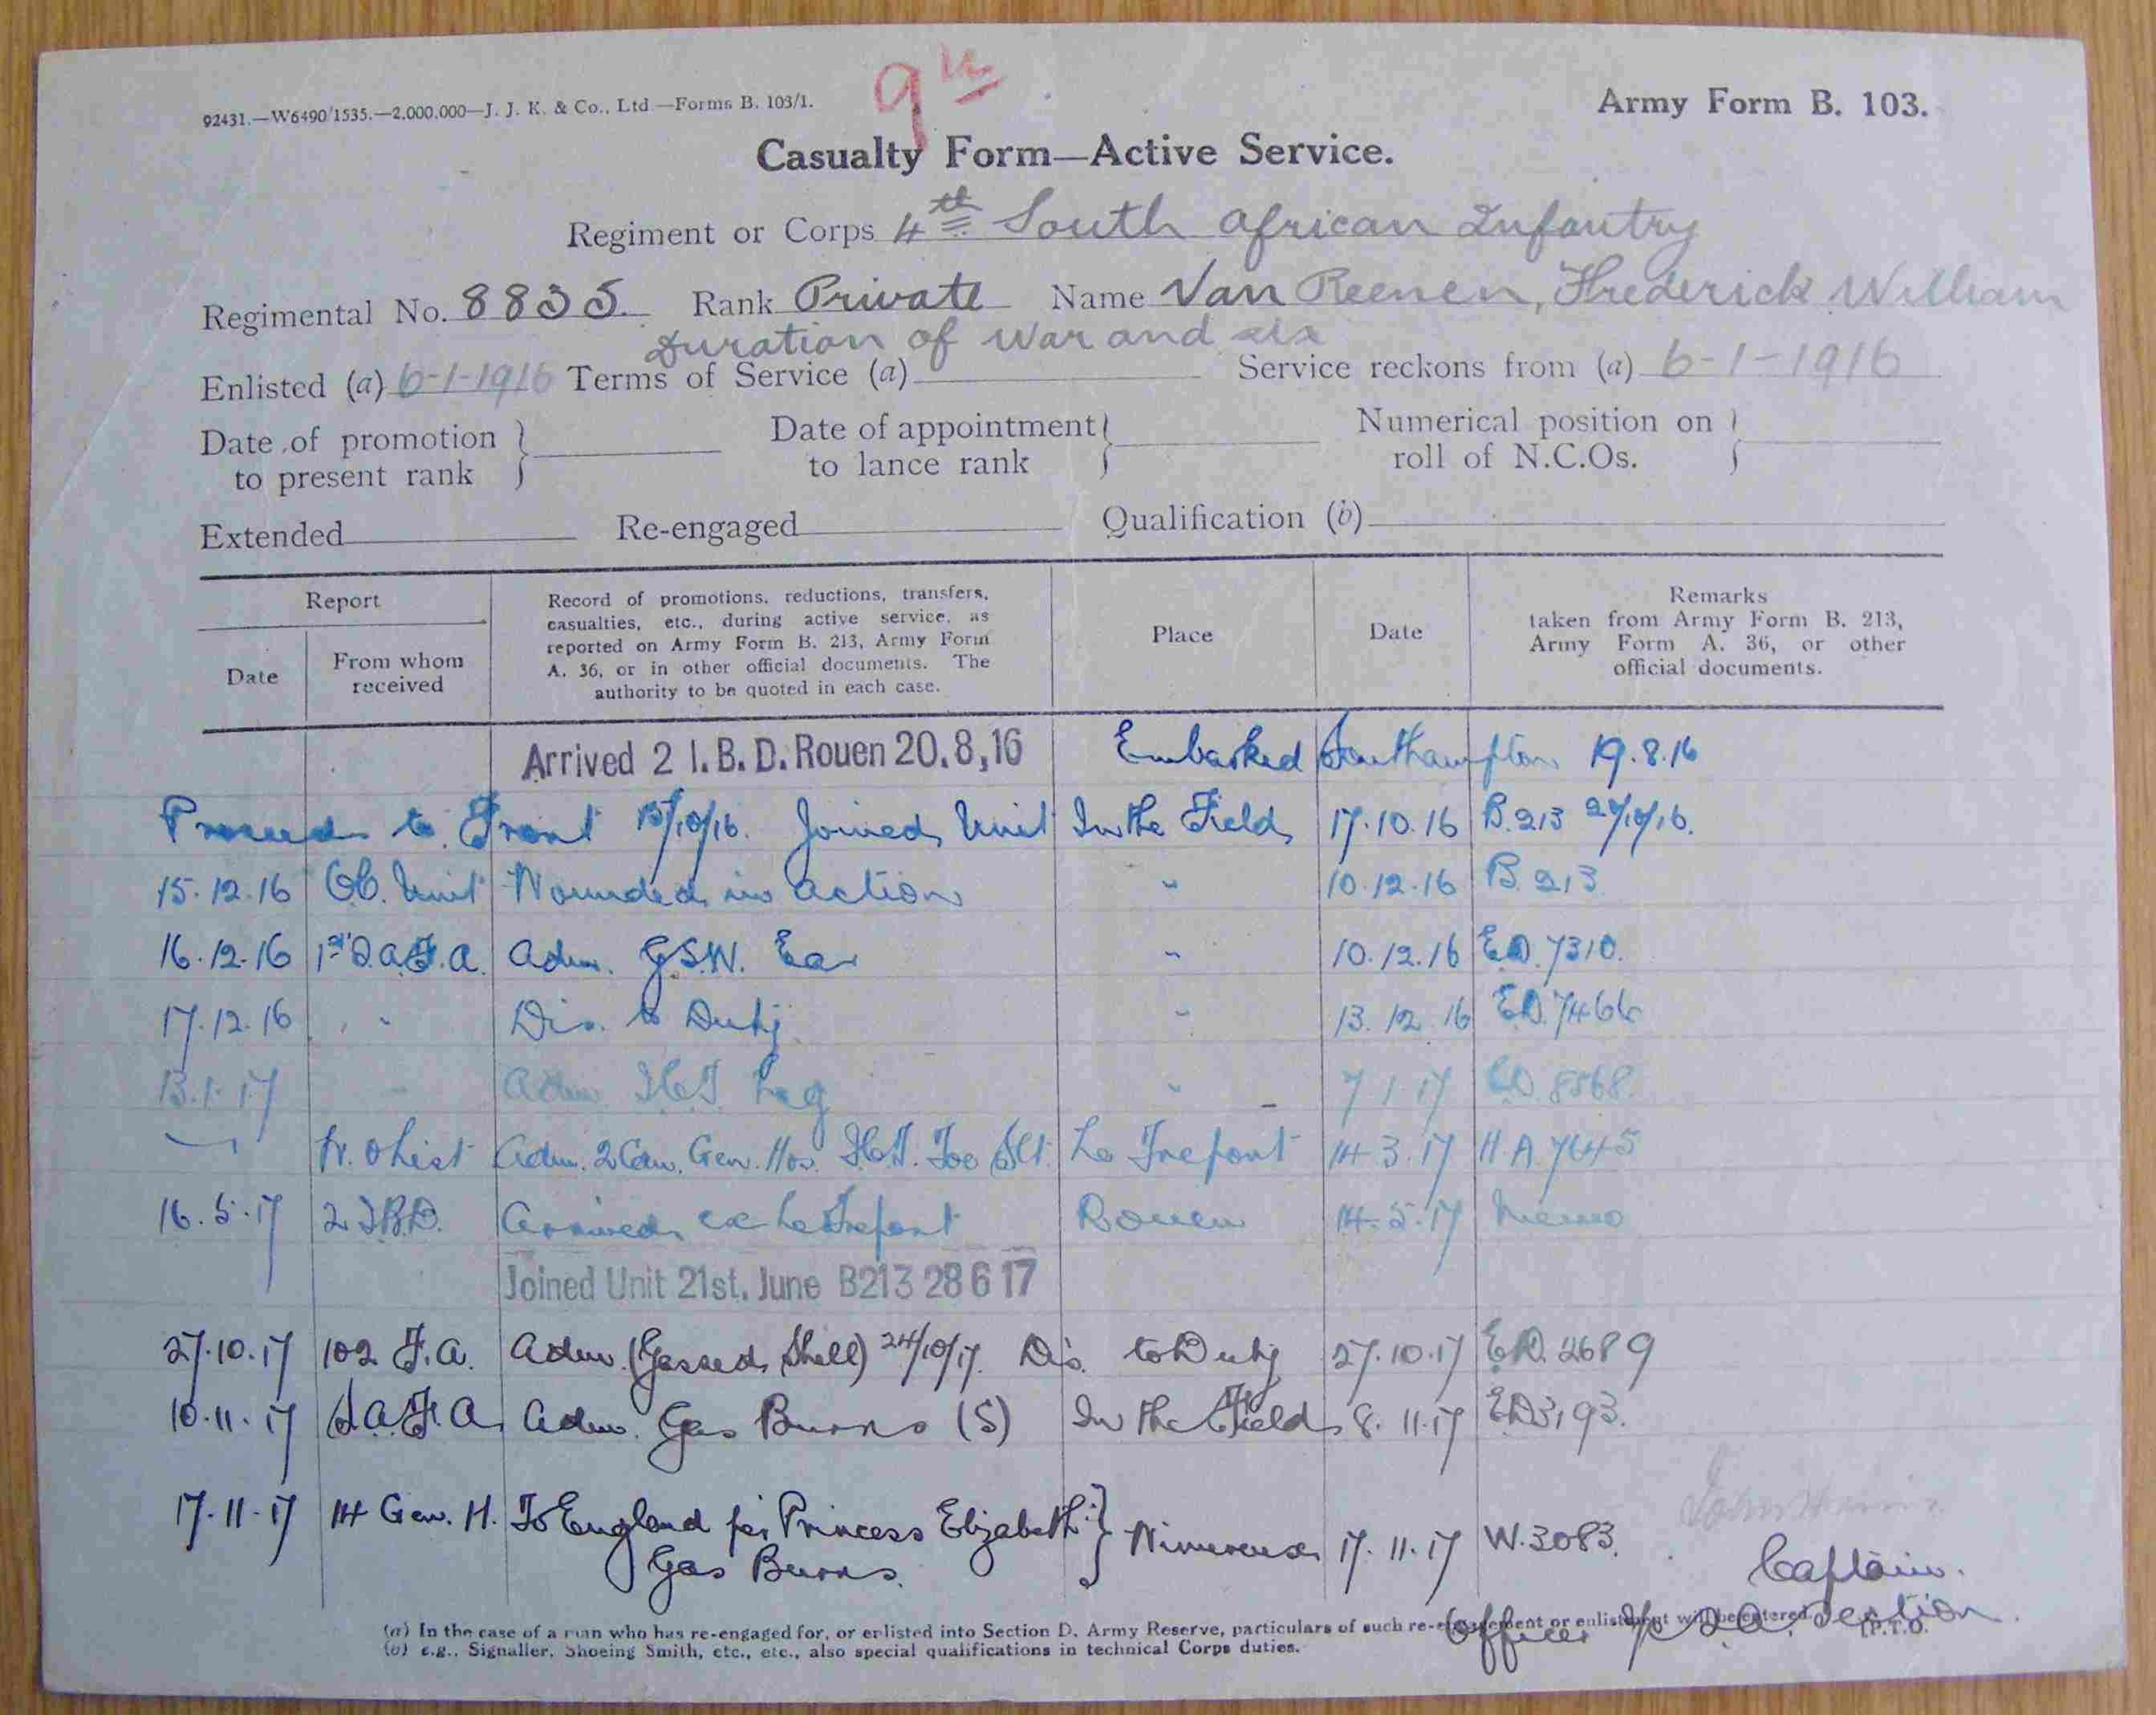 9th
92431.—W6490/1535.—2,000,000—J. J. K. & Co., Ltd.—Forms B. 103/1.
Army Form B. 103.
Casualty Form—Active Service.
Regiment or Corps 4th South African Infantry
Regimental No. 8835. Rank Private Name Van Reenen, Frederick William
Duration of War and six
Enlisted (a) 6-1-1916 Terms of Service (a) Service reckons from (a) 6-1-1916
Date of promotion to present rank } Date of appointment to lance rank } Numerical position on roll of N.C.Os. }
Extended Re-engaged Qualification (b)
Report
Date
From whom received
Record of promotions, reductions, transfers,
casualties, etc., during active service, as
reported on Army Form B. 213, Army Form
A. 36, or in other official documents. The
authority to be quoted in each case.
Place
Date
Remarks
taken from Army Form B. 213,
Army Form A. 36, or other
official documents.
Arrived 2 I.B.D. Rouen 20.8.16 Embarked Southampton 19.8.16
Proceeds to Front 15/10/16. Joined Unit In the Field 17.10.16 B.213 27/10/16.
15.12.16 OC. Unit Wounded in action " 10.12.16 B.213
16.12.16 1st S.A.F.A. Adm. G.S.W. Ear " 10.12.16 ED.7310.
17.12.16 " Dis. to Duty " 13.12.16 ED.7466
13.1.17 " Adm. I.C.T. Leg " 7.1.17 ED.8568.
" Adm. 2 Can. Gen. Hos. I.C.T. Toe Slt. Le Treport 14.3.17 H.A.7645
16.5.17 2 I.B.D. Arrived ex Le Treport Rouen 14.5.17 Memo
Joined Unit 21st. June B213 28 6 17
27.10.17 102 F.A. Adm. (Gassed Shell) 24/10/17. Dis. to Duty 27.10.17 ED.2689
10.11.17 S.A.F.A. Adm. Gas Burns (S) In the Field 8.11.17 ED3193.
17.11.17 14 Gen. H. To England per Princess Elizabeth } Wimereux 17.11.17 W.3083.
Gas Burns.
Captain.
Officer i/c S.A. Section.
(a) In the case of a man who has re-engaged for, or enlisted into Section D. Army Reserve, particulars of such re-engagement or enlistment will be entered.
[P.T.O.
(b) e.g., Signaller, Shoeing Smith, etc., etc., also special qualifications in technical Corps duties.